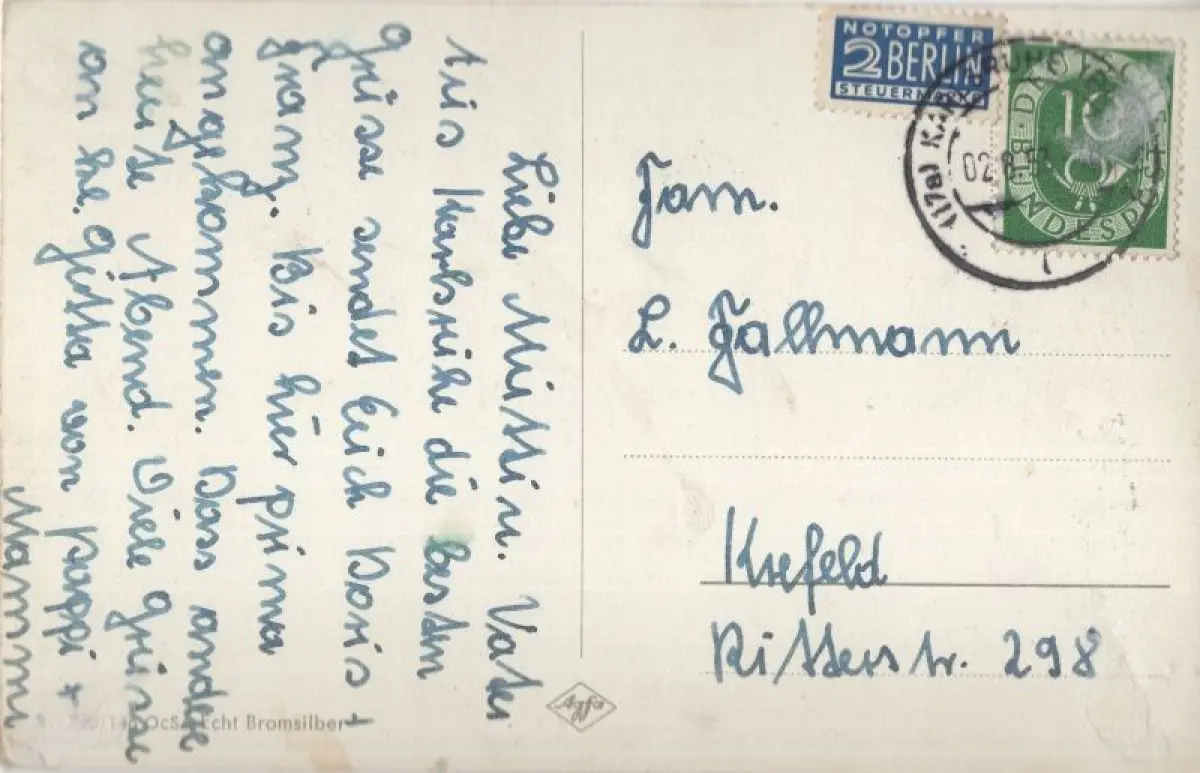 Liebe Mutti u. Vater
aus Karlsruhe die besten
Grüsse sendet Euch Doris +
Franz. Bis hier prima
angekommen. Das andere
heute Abend. Viele Grüsse
an Gitta von Pappi +
Mammi
NOTOPFER
2 BERLIN
STEUERMARKE
10
DEUTSCHE BUNDESPOST
(17a) KARLSRUHE
02.8.
Fam.
L. Fallmann
Krefeld
Ritterstr. 298
Agfa
Echt Bromsilber